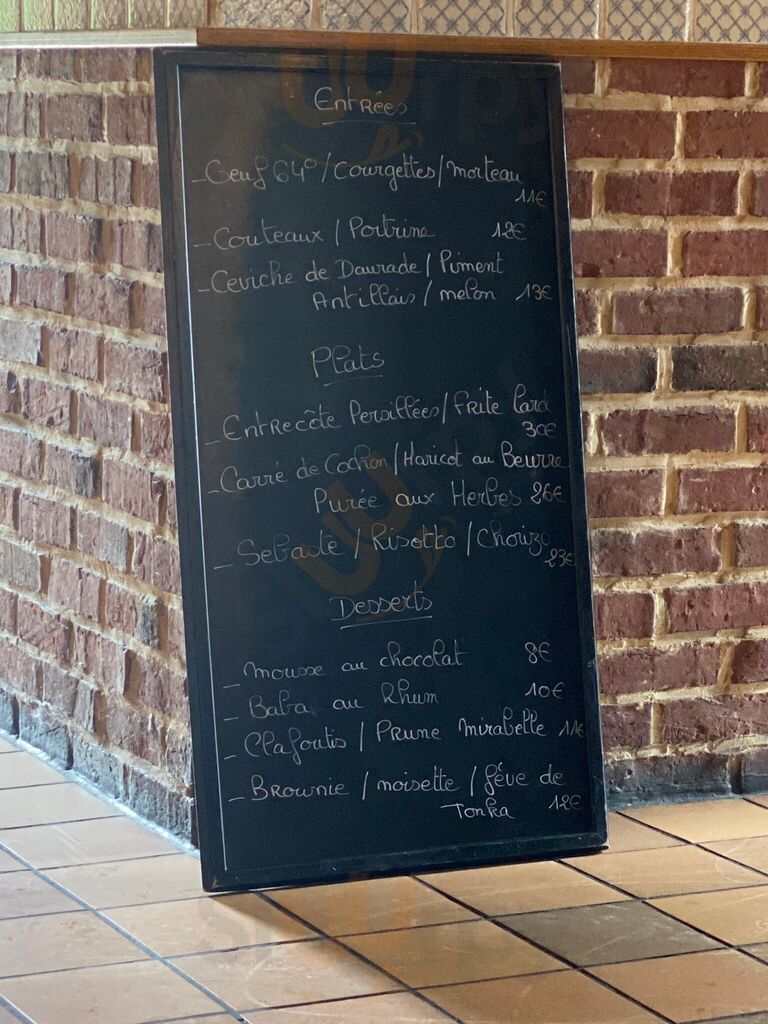 Entrées
- Oeuf 64°/Courgettes/morteau
11€
- Couteaux / Poitrine 12€
- Ceviche de Daurade / Piment
Antillais / melon 13€
Plats
- Entrecôte Persillées/frite Lard
30€
- Carré de Cochon/Haricot au Beurre
Purée aux Herbes 26€
- Sebaste / Risotto / Choizo
23€
Desserts
- mousse au chocolat 8€
- Baba au Rhum 10€
- Clafoutis / Prune mirabelle 11€
- Brownie / noisette / fève de
Tonka 12€